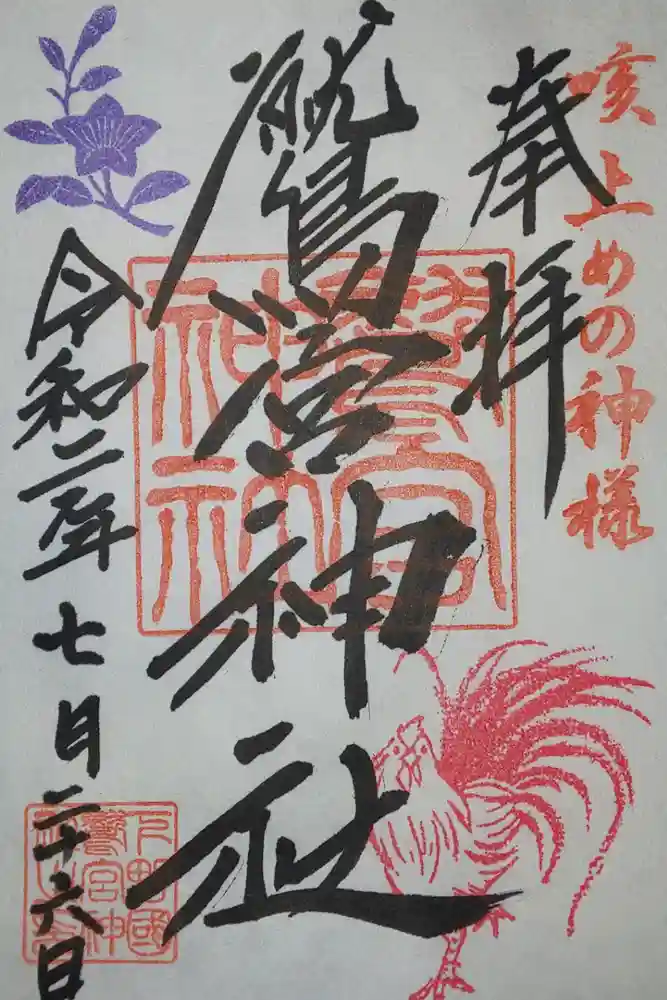 咳止めの神様
奉拝
鷲宮神社
令和二年七月二十六日
鷲宮神社
下野國鷲宮神社